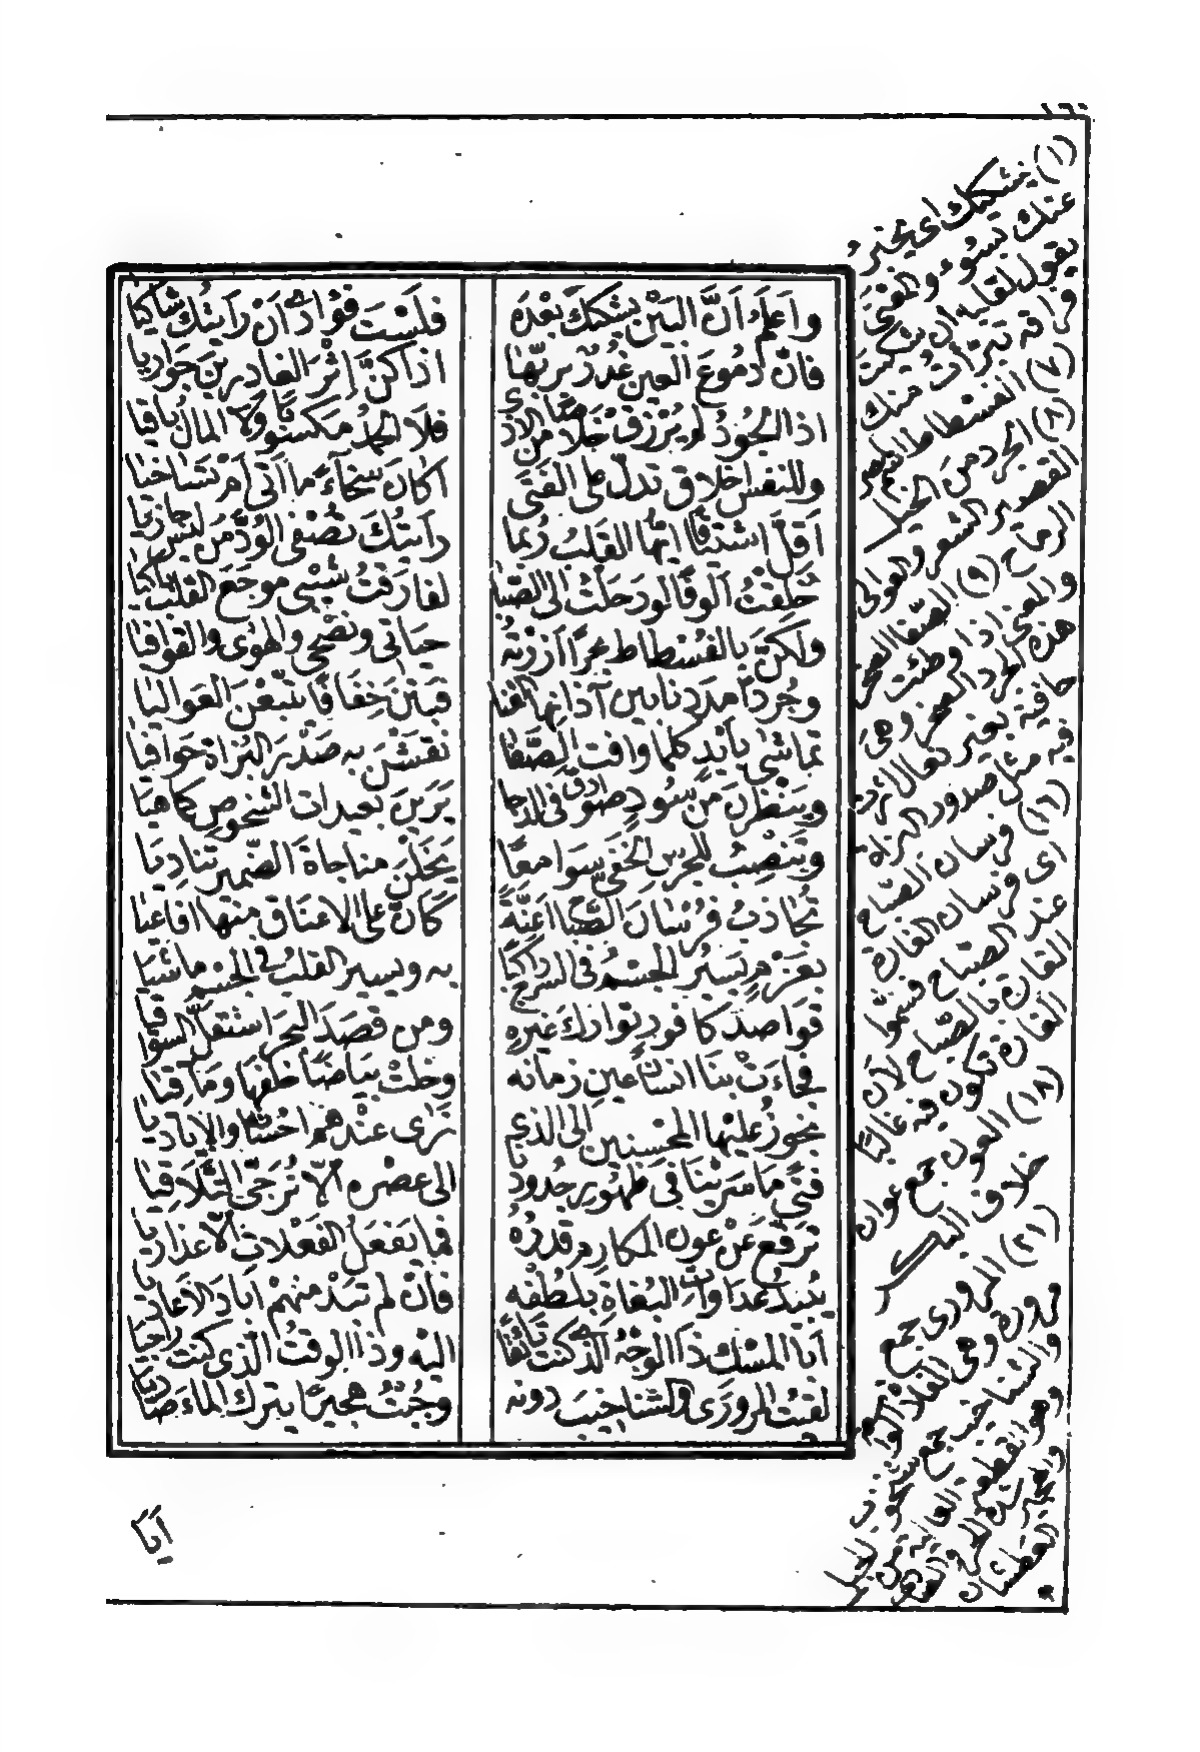 وَأَعْلَمُ أَنَّ الْبَيْنَ يُشْكِيكَ بَعْدَهُ فَلَسْتَ فُؤَادِي أَنْ رَأَيْتُكَ شَاكِيَا
فَإِنَّ دُمُوعَ الْعَيْنِ غُدْرٌ بِرَبِّهَا إِذَا كُنَّ إِثْرَ الْغَادِرِينَ جَوَارِيَا
إِذَا الْجُودُ لَمْ يُرْزَقْ خَلَاصًا مِنَ الْأَذَى فَلَا الْحَمْدُ مَكْسُوبًا وَلَا الْمَالُ بَاقِيَا
وَلِلنَّفْسِ أَخْلَاقٌ تَدُلُّ عَلَى الْفَتَى أَكَانَ سَخَاءً مَا أَتَى أَمْ تَسَاخِيَا
أَقِلَّ اشْتِيَاقًا أَيُّهَا الْقَلْبُ رُبَّمَا رَأَيْتُكَ تُصْفِي الْوُدَّ مَنْ لَيْسَ جَازِيَا
خُلِقْتُ أَلُوفًا لَوْ رَحَلْتُ إِلَى الصِّبَا لَفَارَقْتُ شَيْبِي مُوجَعَ الْقَلْبِ بَاكِيَا
وَلَكِنَّ بِالْفُسْطَاطِ بَحْرًا أَزَرْتُهُ حَيَاتِي وَنُصْحِي وَالْهَوَى وَالْقَوَافِيَا
وَجُرْدًا مَدَدْنَا بَيْنَ آذَانِهَا الْقَنَا فَبِتْنَ خِفَافًا يَتَّبِعْنَ الْعَوَالِيَا
تَمَاشَى بِأَيْدٍ كُلَّمَا وَافَتِ الصَّفَا نَقَشْنَ بِهِ صَدْرَ الْبُزَاةِ حَوَافِيَا
وَيَنْظُرْنَ مِنْ سُودٍ صَوَادِقَ فِي الدُّجَى يَرَيْنَ بَعِيدَاتِ الشُّخُوصِ كَمَا هِيَا
وَيَنْصِبْنَ لِلْجَرْسِ الْخَفِيِّ سَوَامِعًا يَخَلْنَ مُنَاجَاةَ الضَّمِيرِ تَنَادِيَا
تُجَاذِبُ فُرْسَانَ الصَّبَاحِ أَعِنَّةً كَأَنَّ عَلَى الْأَعْنَاقِ مِنْهَا أَفَاعِيَا
بِعَزْمٍ يَسِيرُ الْجِسْمُ فِي السَّرْجِ رَاكِبًا بِهِ وَيَسِيرُ الْقَلْبُ فِي الْجِسْمِ مَاشِيَا
قَوَاصِدَ كَافُورٍ تَوَارِكَ غَيْرِهِ وَمَنْ قَصَدَ الْبَحْرَ اسْتَقَلَّ السَّوَاقِيَا
فَجَاءَتْ بِنَا إِنْسَانَ عَيْنِ زَمَانِهِ وَخَلَّتْ بَيَاضًا خَلْفَهَا وَمَآقِيَا
نَجُوزُ عَلَيْهَا الْمُحْسِنِينَ إِلَى الَّذِي نَرَى عِنْدَهُمْ إِحْسَانَهُ وَالْأَيَادِيَا
فَتًى مَا سَرَيْنَا فِي ظُهُورِ جُدُودِنَا إِلَى عَصْرِهِ إِلَّا نُرَجِّي التَّلَاقِيَا
تَرَفَّعَ عَنْ عُونِ الْمَكَارِمِ قَدْرُهُ فَمَا يَفْعَلُ الْفَعْلَاتِ إِلَّا عَذَارِيَا
يُبِيدُ عَدَاوَاتِ الْبُغَاةِ بِلُطْفِهِ فَإِنْ لَمْ تَبِدْ مِنْهُمْ أَبَادَ الْأَعَادِيَا
أَبَا الْمِسْكِ ذَا الْوَجْهُ الَّذِي كُنْتُ تَائِقًا إِلَيْهِ وَذَا الْوَقْتُ الَّذِي كُنْتُ رَاجِيَا
لَقِيتُ الْمَرَوْرَى وَالشَّنَاخِيبَ دُونَهُ وَجُبْتُ هَجِيرًا يَتْرُكُ الْمَاءَ صَادِيَا
أبا
(١) يشكيك اى يخبر
عنك بسوء والفتى
يقول لقلبه ان شكيت
فراقه تبرأت منك
(٧) الفسطاط اسم مصر
(٨) الجرد من الخيل
القصير الشعر والعوالى
الرماح (٩) الصفا الصخر
والمعنى اذا وطئت
هذه الجرد الصخر وهى
حافية بغير نعال اثرت
فيه مثل صدور البزاة
(١٢) فرسان الصباح
اى فرسان الغارة
عند الصباح فسموا
الغارة بالصباح لان
الغارة تكون فيه غالبا
(١٨) العون جمع عوان
خلاف البكر
(٢١) المرورى جمع
مروراة وهى الفلاة الواسعة
والشناخيب جمع